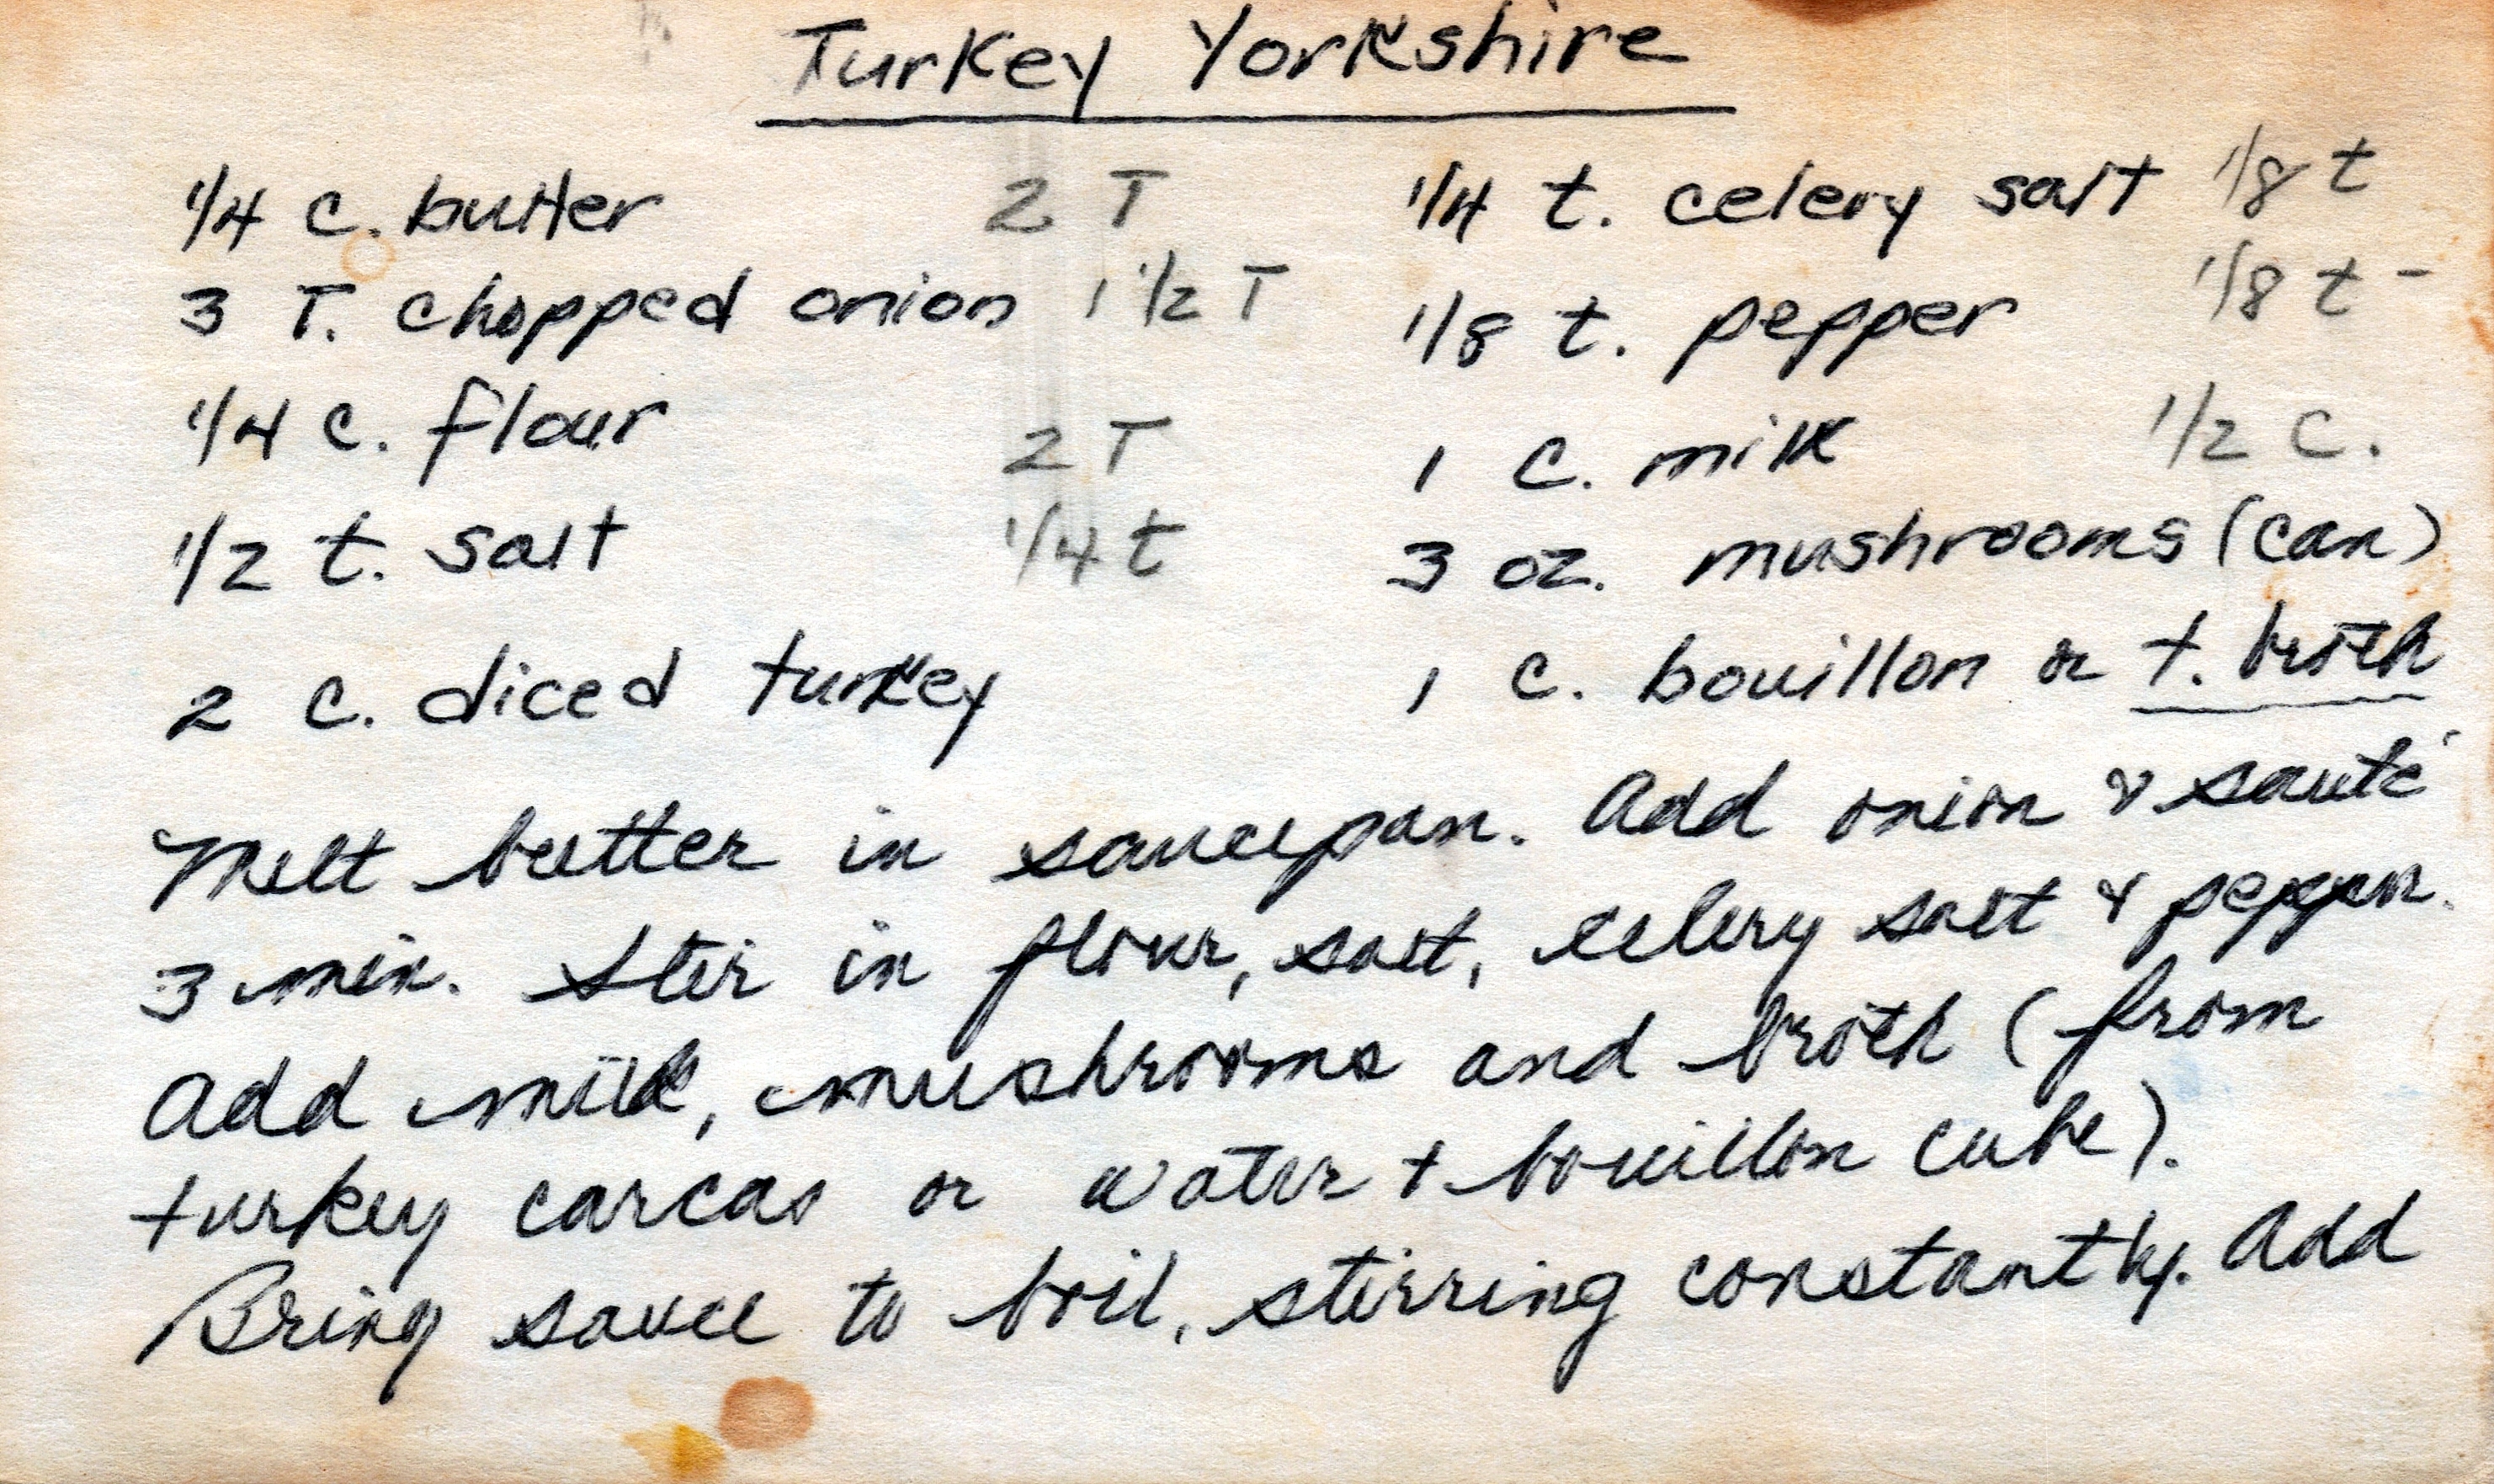 Turkey Yorkshire
1/4 c. butter 2 T
3 T. chopped onion 1 1/2 T
1/4 c. flour 2 T
1/2 t. salt 1/4 t
2 c. diced turkey
1/4 t. celery salt 1/8 t
1/8 t. pepper 1/8 t -
1 c. milk 1/2 c.
3 oz. mushrooms (can)
1 c. bouillon or t. broth
Melt butter in saucepan. Add onion & sauté
3 min. Stir in flour, salt, celery salt & pepper.
Add milk, mushrooms and broth (from
turkey carcas or water + bouillon cube).
Bring sauce to boil, stirring constantly. Add